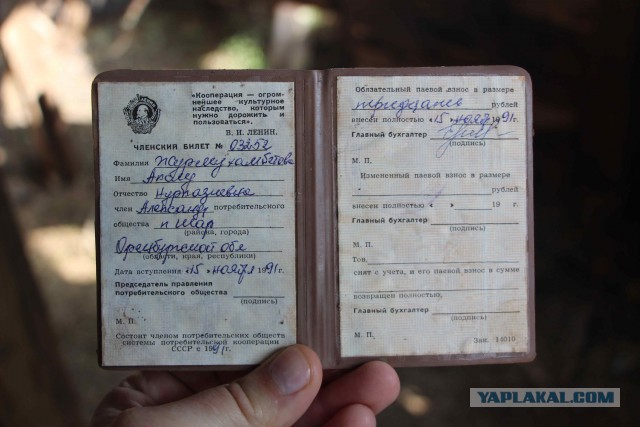 «Кооперация — огром-
нейшее культурное
наследство, которым
нужно дорожить и
пользоваться».
В. И. ЛЕНИН.
ЧЛЕНСКИЙ БИЛЕТ № 03252
Фамилия
Имя
Отчество
член потребительского
общества
(района, города)
Оренбургской обл
(области, края, республики)
Дата вступления «15» ноября 1991г.
Председатель правления
потребительского общества
(подпись)
М. П.
Состоит членом потребительских обществ
системы потребительской кооперации
СССР с 1991г.
Обязательный паевой взнос в размере
тридцать рублей
внесен полностью «15» нояб 1991г.
Главный бухгалтер
(подпись)
М. П.
Измененный паевой взнос в размере
рублей
внесен полностью « » 19 г.
Главный бухгалтер
(подпись)
М. П.
Тов.
снят с учета, и его паевой взнос в сумме
возвращен полностью.
Главный бухгалтер
(подпись)
М. П.
Зак. 14010
YAPLAKAL.COM